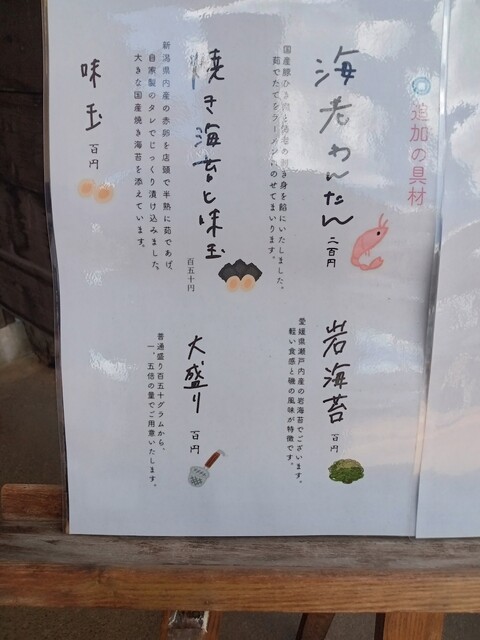 追加の具材
海老わんたん 二百円
国産豚ひき肉と海老の剥き身を餡にいたしました。
茹でたてをラーメンにのせてまいります。
焼き海苔と味玉 百五十円
新潟県内産の赤卵を店頭で半熟に茹であげ、
自家製のタレでじっくり漬け込みました。
大きな国産焼き海苔を添えています。
味玉 百円
岩海苔 百円
愛媛県瀬戸内産の岩海苔でございます。
軽い食感と磯の風味が特徴です。
大盛り 百円
普通盛り百五十グラムから、
一、五倍の量でご用意いたします。